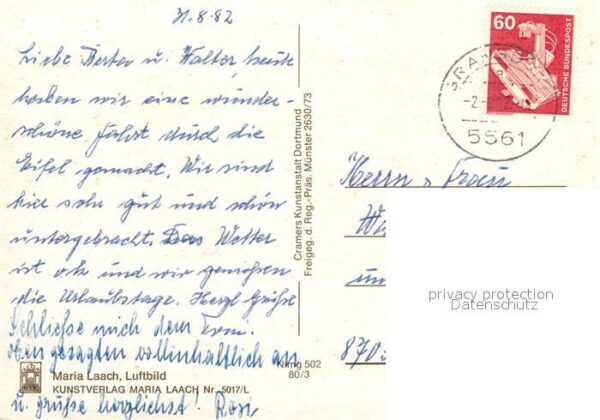 31.8.82
Liebe Berta u. Walter, heute
haben wir eine wunder-
schöne Fahrt durch die
Eifel gemacht. Wir sind
hier sehr gut und schön
untergebracht. Das Wetter
ist ok und wir genießen
die Urlaubstage. Herzl Grüße
Schließe mich dem
oben gesagten vollinhaltlich an
u. grüße herzlichst! Rosi
Maria Laach, Luftbild
KUNSTVERLAG MARIA LAACH Nr. 5017/L
502
80/3
Cramers Kunstanstalt Dortmund
Freigeg. d. Reg.-Präs. Münster 2630/73
60
DEUTSCHE BUNDESPOST
5561
Herrn u Frau
privacy protection
Datenschutz
870